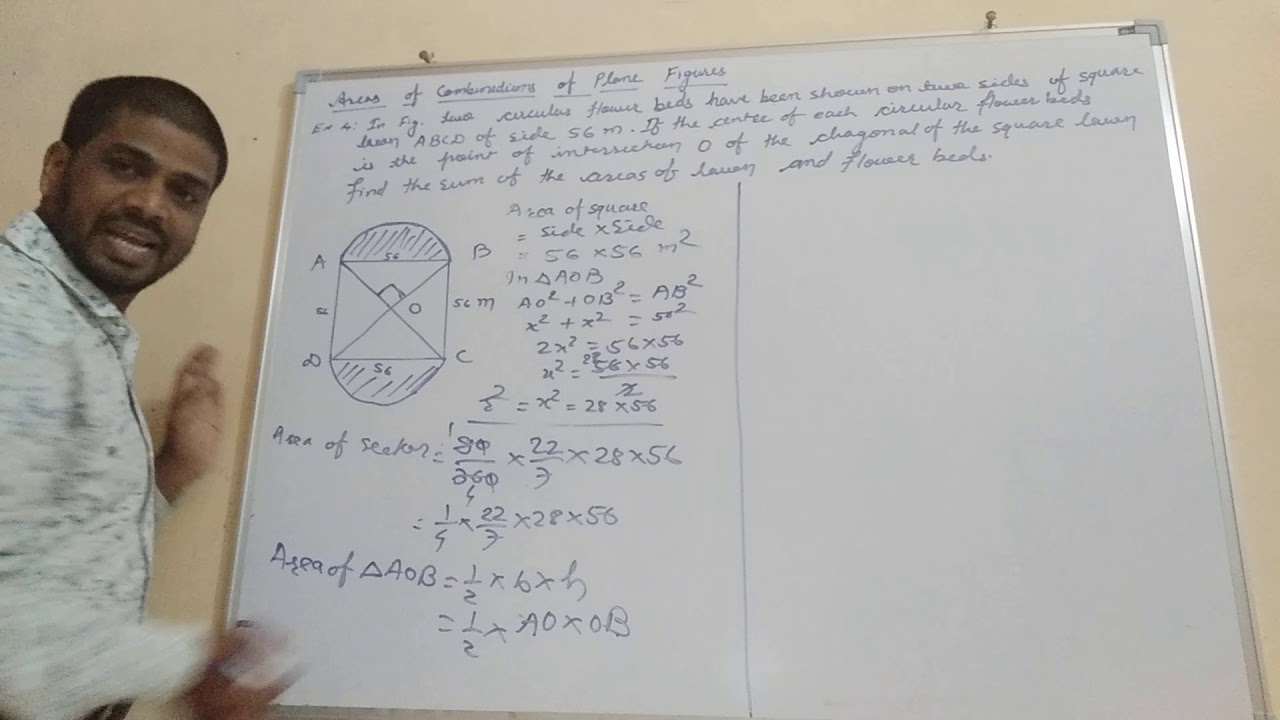 Areas of Combinations of Plane Figures
Ex 4: In Fig. two circular flower beds have been shown on two sides of square
lawn ABCD of side 56 m. If the centre of each circular flower beds
is the point of intersection O of the diagonal of the square lawn
find the sum of the areas of lawn and flower beds.
Area of square
= side × side
= 56 × 56 m²
In △AOB
AO² + OB² = AB²
x² + x² = 56²
2x² = 56×56
x² = 56×56
28
2
r² = x² = 28×56
A
B
56
56
56 m
O
D
C
56
Area of sector = 90/360 × 22/7 × 28 × 56
1
4
= 1/4 × 22/7 × 28 × 56
Area of △AOB = 1/2 × b × h
= 1/2 × AO × OB